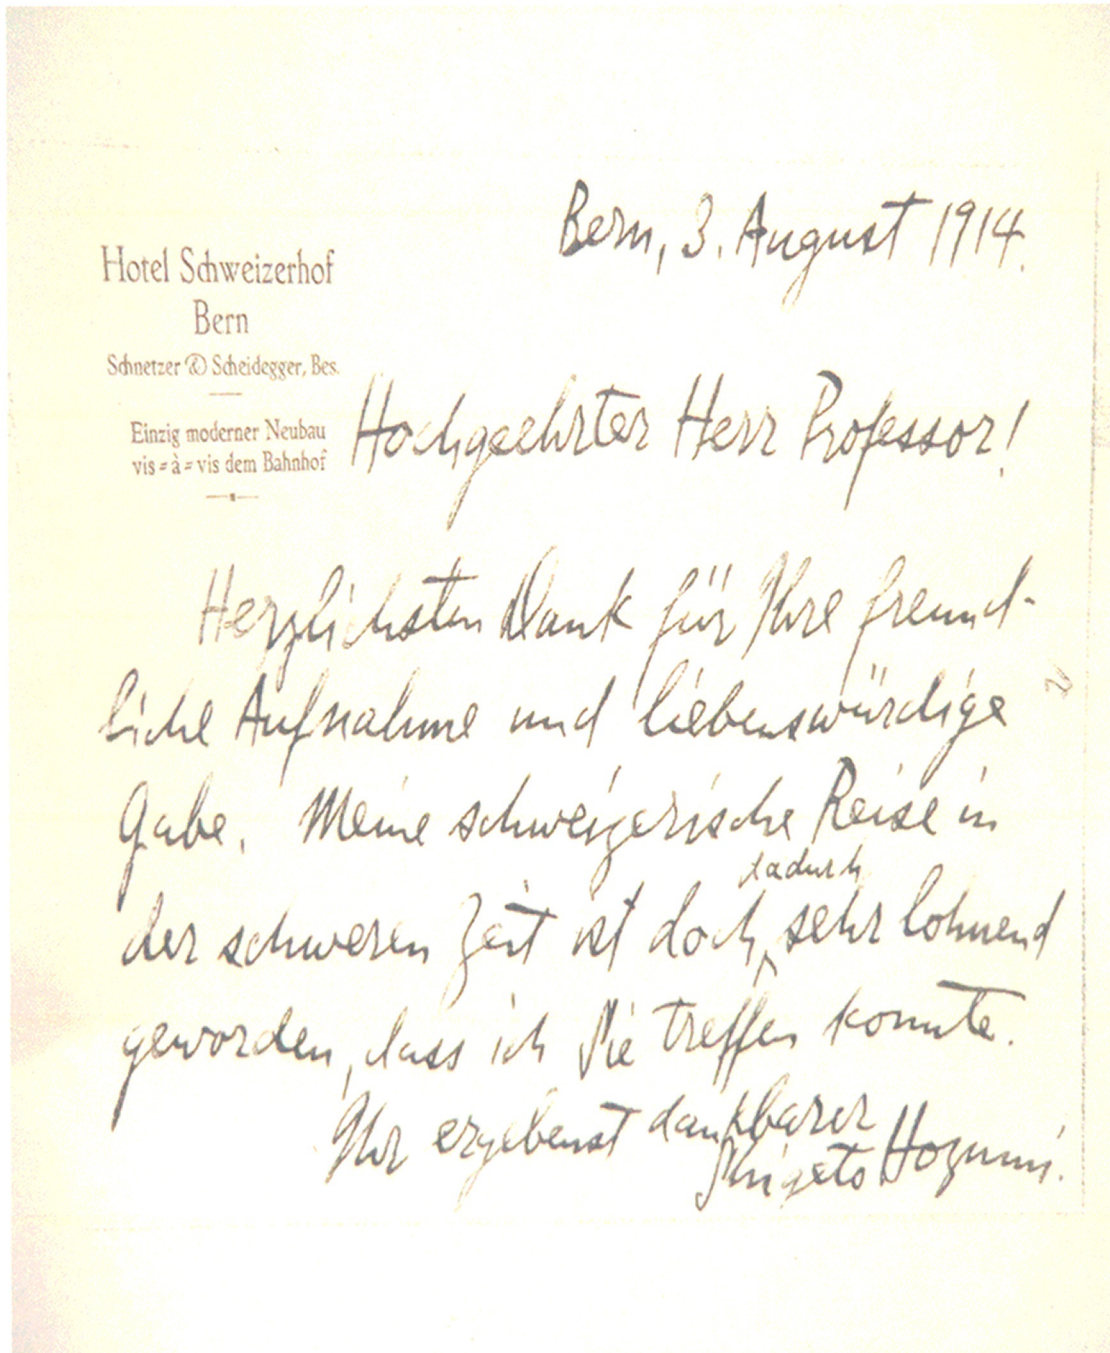 Bern, 3. August 1914.
Hotel Schweizerhof
Bern
Schnetzer & Scheidegger, Bes.
Einzig moderner Neubau
vis=à=vis dem Bahnhof
Hochgeehrter Herr Professor!
Herzlichsten Dank für Ihre freund-
liche Aufnahme und liebenswürdige
Gabe. Meine schweizerische Reise in
dadurch
der schweren Zeit ist doch sehr lohnend
geworden, dass ich Sie treffen konnte.
Ihr ergebenst dankbarer
Shigeto Hozumi.